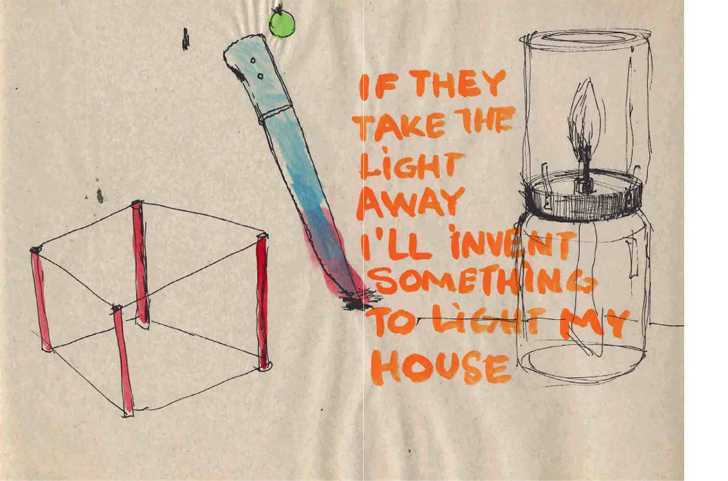 IF THEY
TAKE THE
LiGHT
AWAY
I'LL iNVENT
SOMETHiNG
TO LiGHT MY
HOUSE